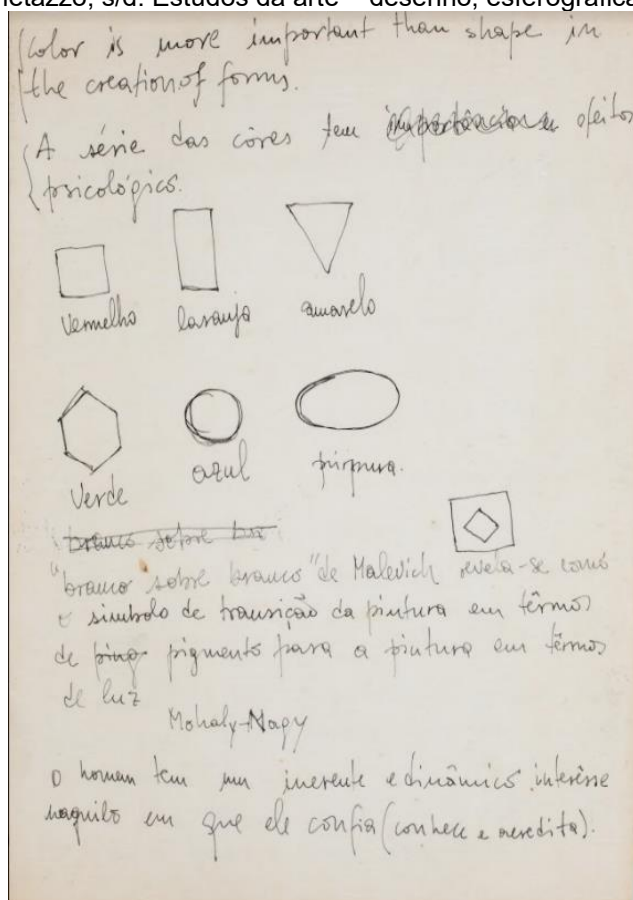 etazzo, s/d. Estudos da arte – desenho, esferográfica
Color is more important than shape in
the creation of forms.
A série das côres tem importância e efeitos
psicológicos.
Vermelho laranja amarelo
Verde azul púrpura.
branco sobre bra
"branco sobre branco" de Malevich revela-se como
o simbolo de transição da pintura em têrmos
de ping pigmento para a pintura em têrmos
de luz
Moholy-Nagy
O homem tem um inerente e dinâmico interêsse
naquilo em que ele confia (conhece e acredita).